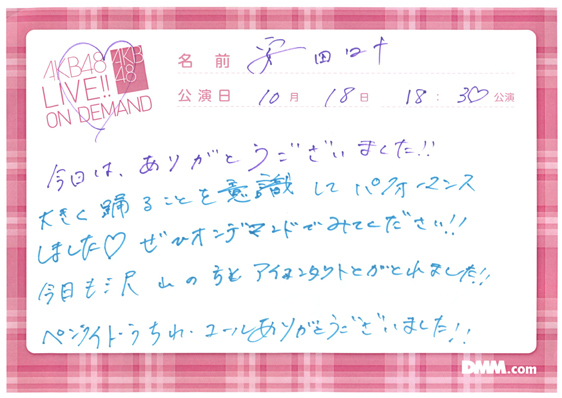 AKB48
LIVE!!
ON DEMAND
AKB
48
名前 安田叶
公演日 10月 18日 18:30♡公演
今日は、ありがとうございました!!
大きく踊ることを意識してパフォーマンス
しました♡ ぜひオンデマンドでみてください!!
今日も沢山の方とアイコンタクトとがとれました!!
ペンライト・うちわ・コールありがとうございました!!
DMM.com